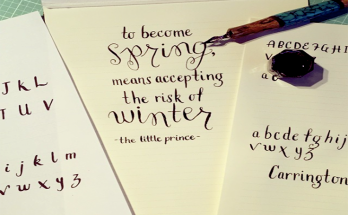 J K L
T U V
i j k l m
v w x y z
to become
spring,
means accepting
the risk of
winter
-the little prince-
ABCDEFGHI
a b c d e f g h i j
v w x y z
Carrington